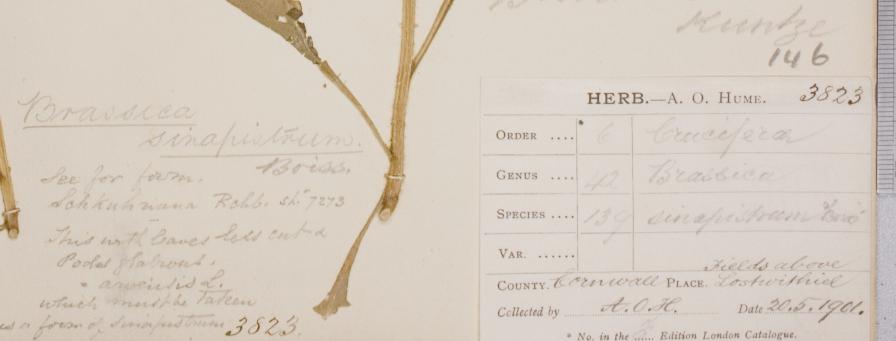 Kuntze
146
Brassica
sinapistrum.
Boiss.
See for form.
Schkuhriana Rchb. sh. 7273
This with leaves less cut &
Pods glabrous.
" arvensis L.
which must be taken
as a form of sinapistrum 3823.
HERB.—A. O. HUME. 3823
ORDER .... 6 Cruciferæ
GENUS .... 42 Brassica
SPECIES .... 139 sinapistrum Boiss
VAR. ......
Fields above
COUNTY. Cornwall PLACE. Lostwithiel
Collected by A.O.H. Date 20.5.1901.
* No. in the ...... Edition London Catalogue.